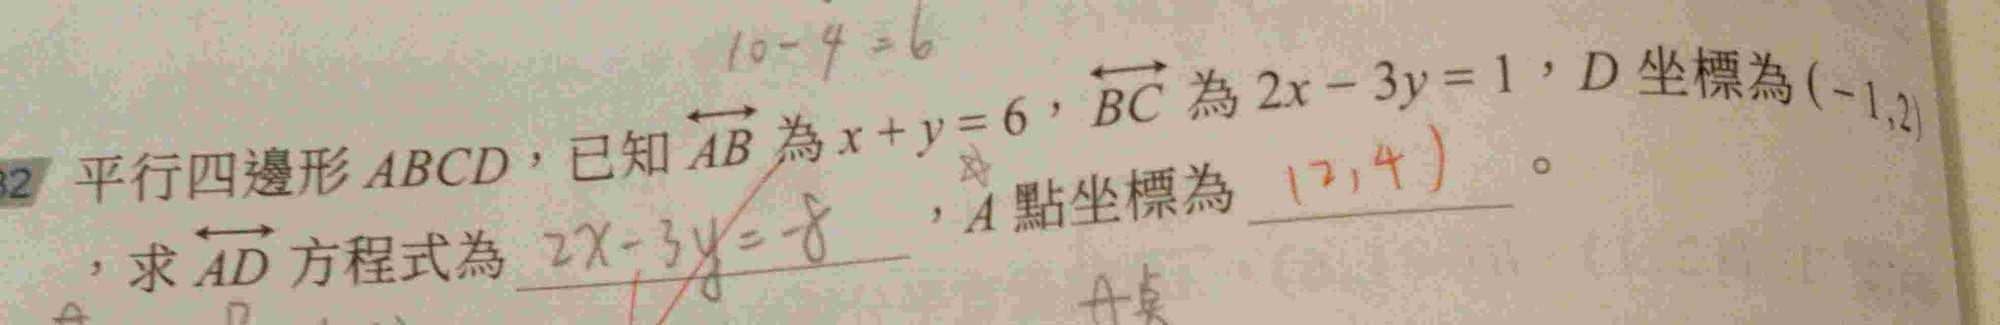 10-4=6
32 平行四邊形 ABCD，已知 AB 為 x + y = 6，BC 為 2x − 3y = 1，D 坐標為 (−1,2)
，求 AD 方程式為 2x-3y=-8 ，A 點坐標為 (2,4) 。
A點